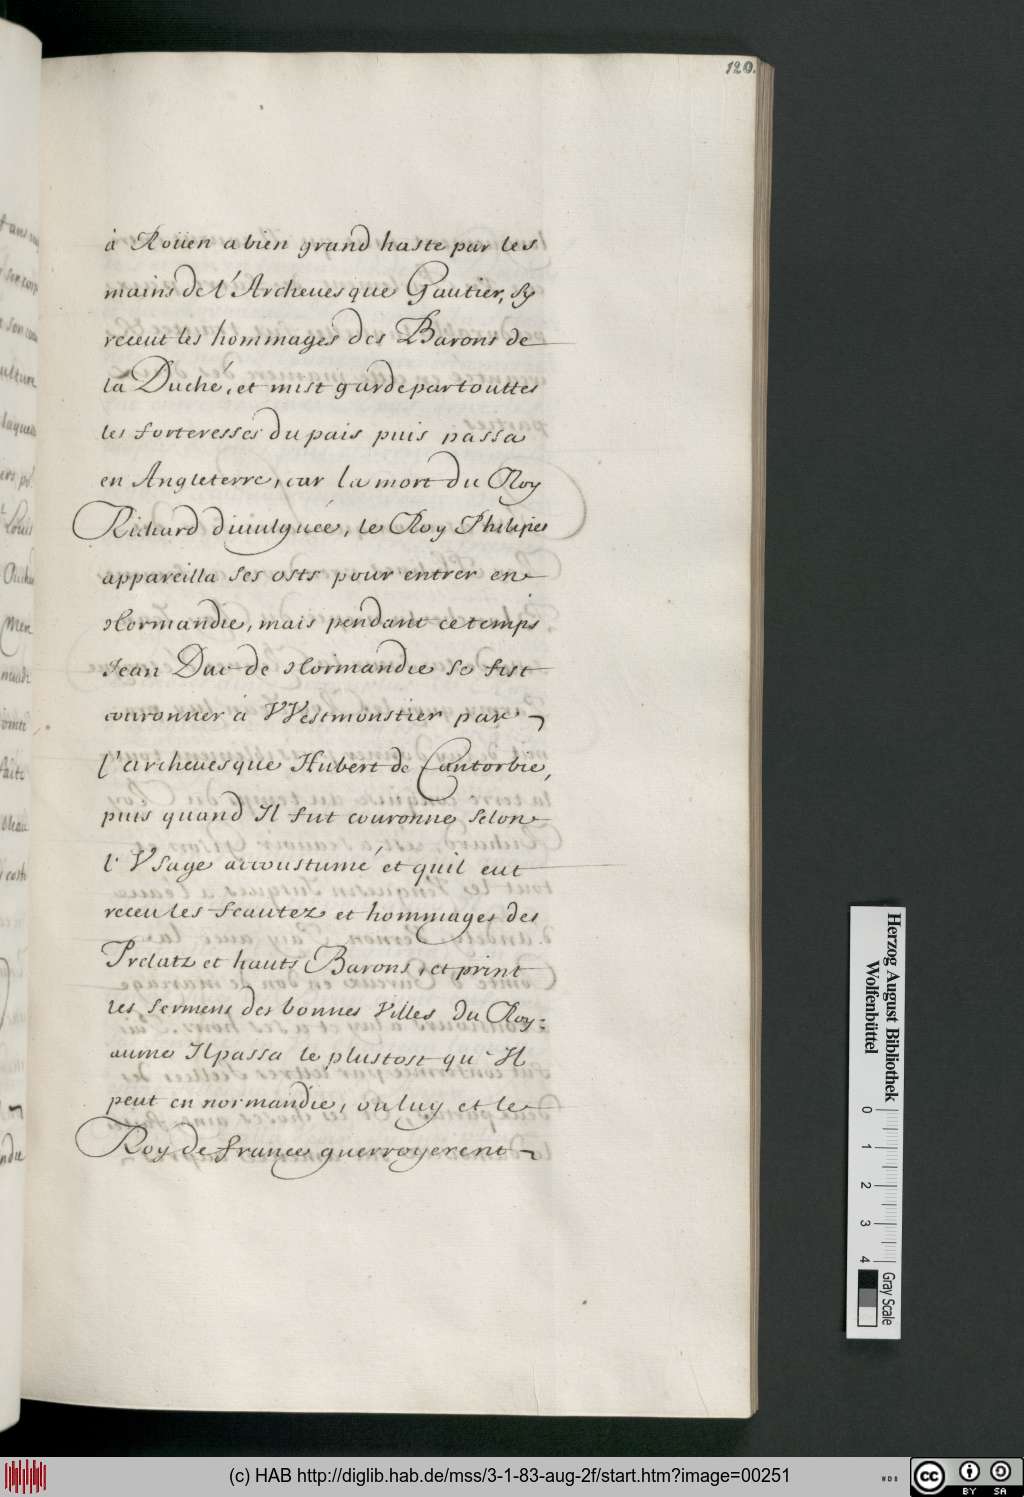 120.
à Roüen a bien grand haste par les
mains de l'Archeuesque Gautier, sy
receut les hommages des Barons de
la Duché, et mist garde par touttes
les forteresses du pais puis passa
en Angleterre, car la mort du Roy
Richard diuulguée, le Roy Philipes
appareilla ses osts pour entrer en
Normandie, mais pendant ce temps
Jean Duc de Normandie se fist
couronner à VVestmonstier par
l'archeuesque Hubert de Cantorbie,
puis quand Il fut couronne selon
l'Vsage accoustumé et quil eut
receu les feautez et hommages des
Prelatz et hauts Barons, et print
les sermens des bonnes Villes du Roy:
aume Il passa le plustost qu'Il
peut en normandie, ou luy et le
Roy de france guerroyerent
Herzog August Bibliothek
Wolfenbüttel
0 1 2 3 4
Gray Scale
(c) HAB http://diglib.hab.de/mss/3-1-83-aug-2f/start.htm?image=00251
WDB
cc
BY SA